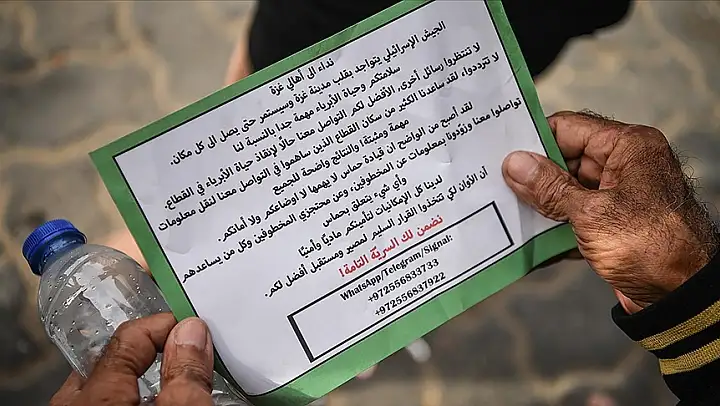 نداء الى أهالي غزة
الجيش الإسرائيلي يتواجد بقلب مدينة غزة وسيستمر حتى يصل الى كل مكان.
سلامتكم وحياة الأبرياء مهمة جدا بالنسبة لنا
لا تنتظروا رسائل أخرى، الأفضل لكم التواصل معنا حالًا لإنقاذ حياة الأبرياء في القطاع.
لا تترددوا، لقد ساعدنا الكثير من سكان القطاع الذين ساهموا في التواصل معنا لنقل معلومات
مهمة ومثبتة، والنتائج واضحة للجميع
لقد أصبح من الواضح ان قيادة حماس لا يهمها لا اوضاعكم ولا أمانكم.
تواصلوا معنا وزوّدونا بمعلومات عن المخطوفين، وعن محتجزي المخطوفين وكل من يساعدهم
وأي شيء يتعلق بحماس
لدينا كل الإمكانيات لتأمينكم ماديًا وأمنيًا
أن الأوان لكي تتخذوا القرار السليم. مصير ومستقبل أفضل لكم.
نضمن لك السريّة التامة!
WhatsApp/Telegram/Signal:
+972556833733
+972556837922